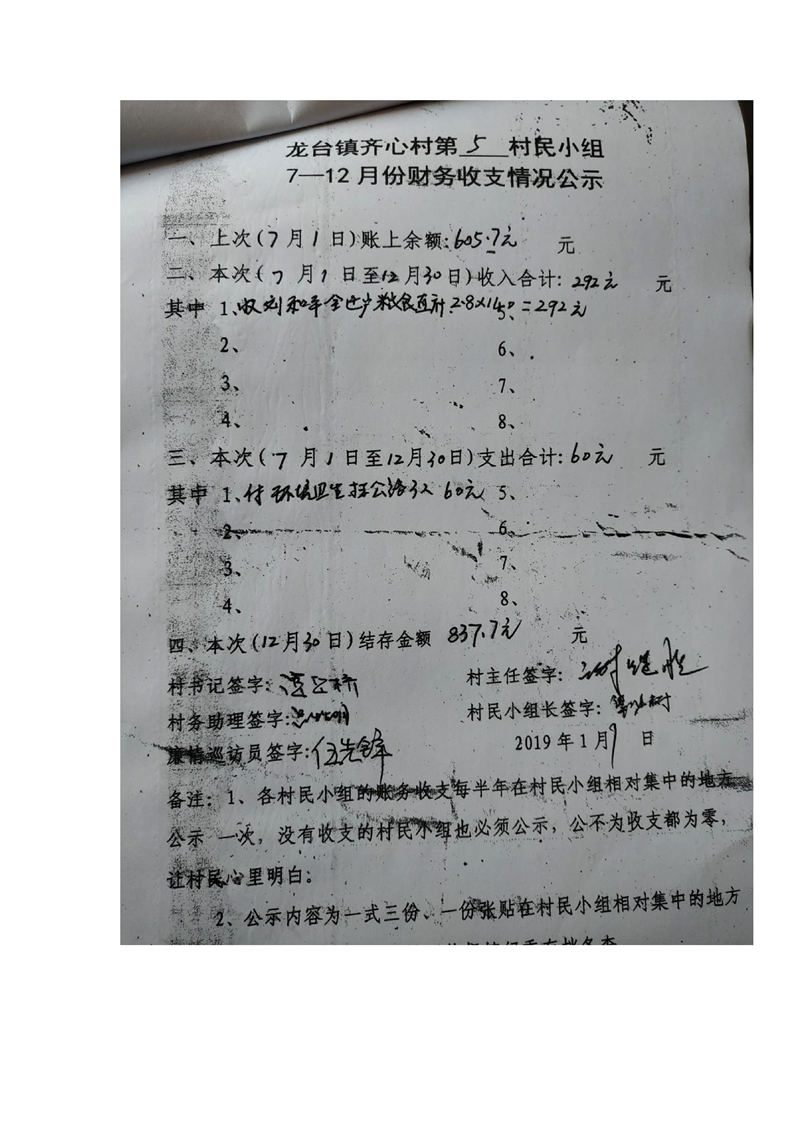 龙台镇齐心村第 5 村民小组
7—12月份财务收支情况公示
一、上次(7月1日)账上余额:605.7元 元
二、本次(7月1日至12月30日)收入合计: 292元 元
其中 1、收刘和平 2.8×140=292元 5、
2、 6、
3、 7、
4、 8、
三、本次(7月1日至12月30日)支出合计:60元 元
其中 1、付环境卫生扫公路 60元 5、
2、 6、
3、 7、
4、 8、
四、本次(12月30日)结存金额 837.7元 元
村书记签字: 村主任签字:
村务助理签字: 村民小组长签字:
廉情巡访员签字:伍先锋 2019年1月9日
备注:1、各村民小组的账务收支每半年在村民小组相对集中的地方
公示 一次,没有收支的村民小组也必须公示,公不为收支都为零,
让村民心里明白。
2、公示内容为一式三份、一份张贴在村民小组相对集中的地方